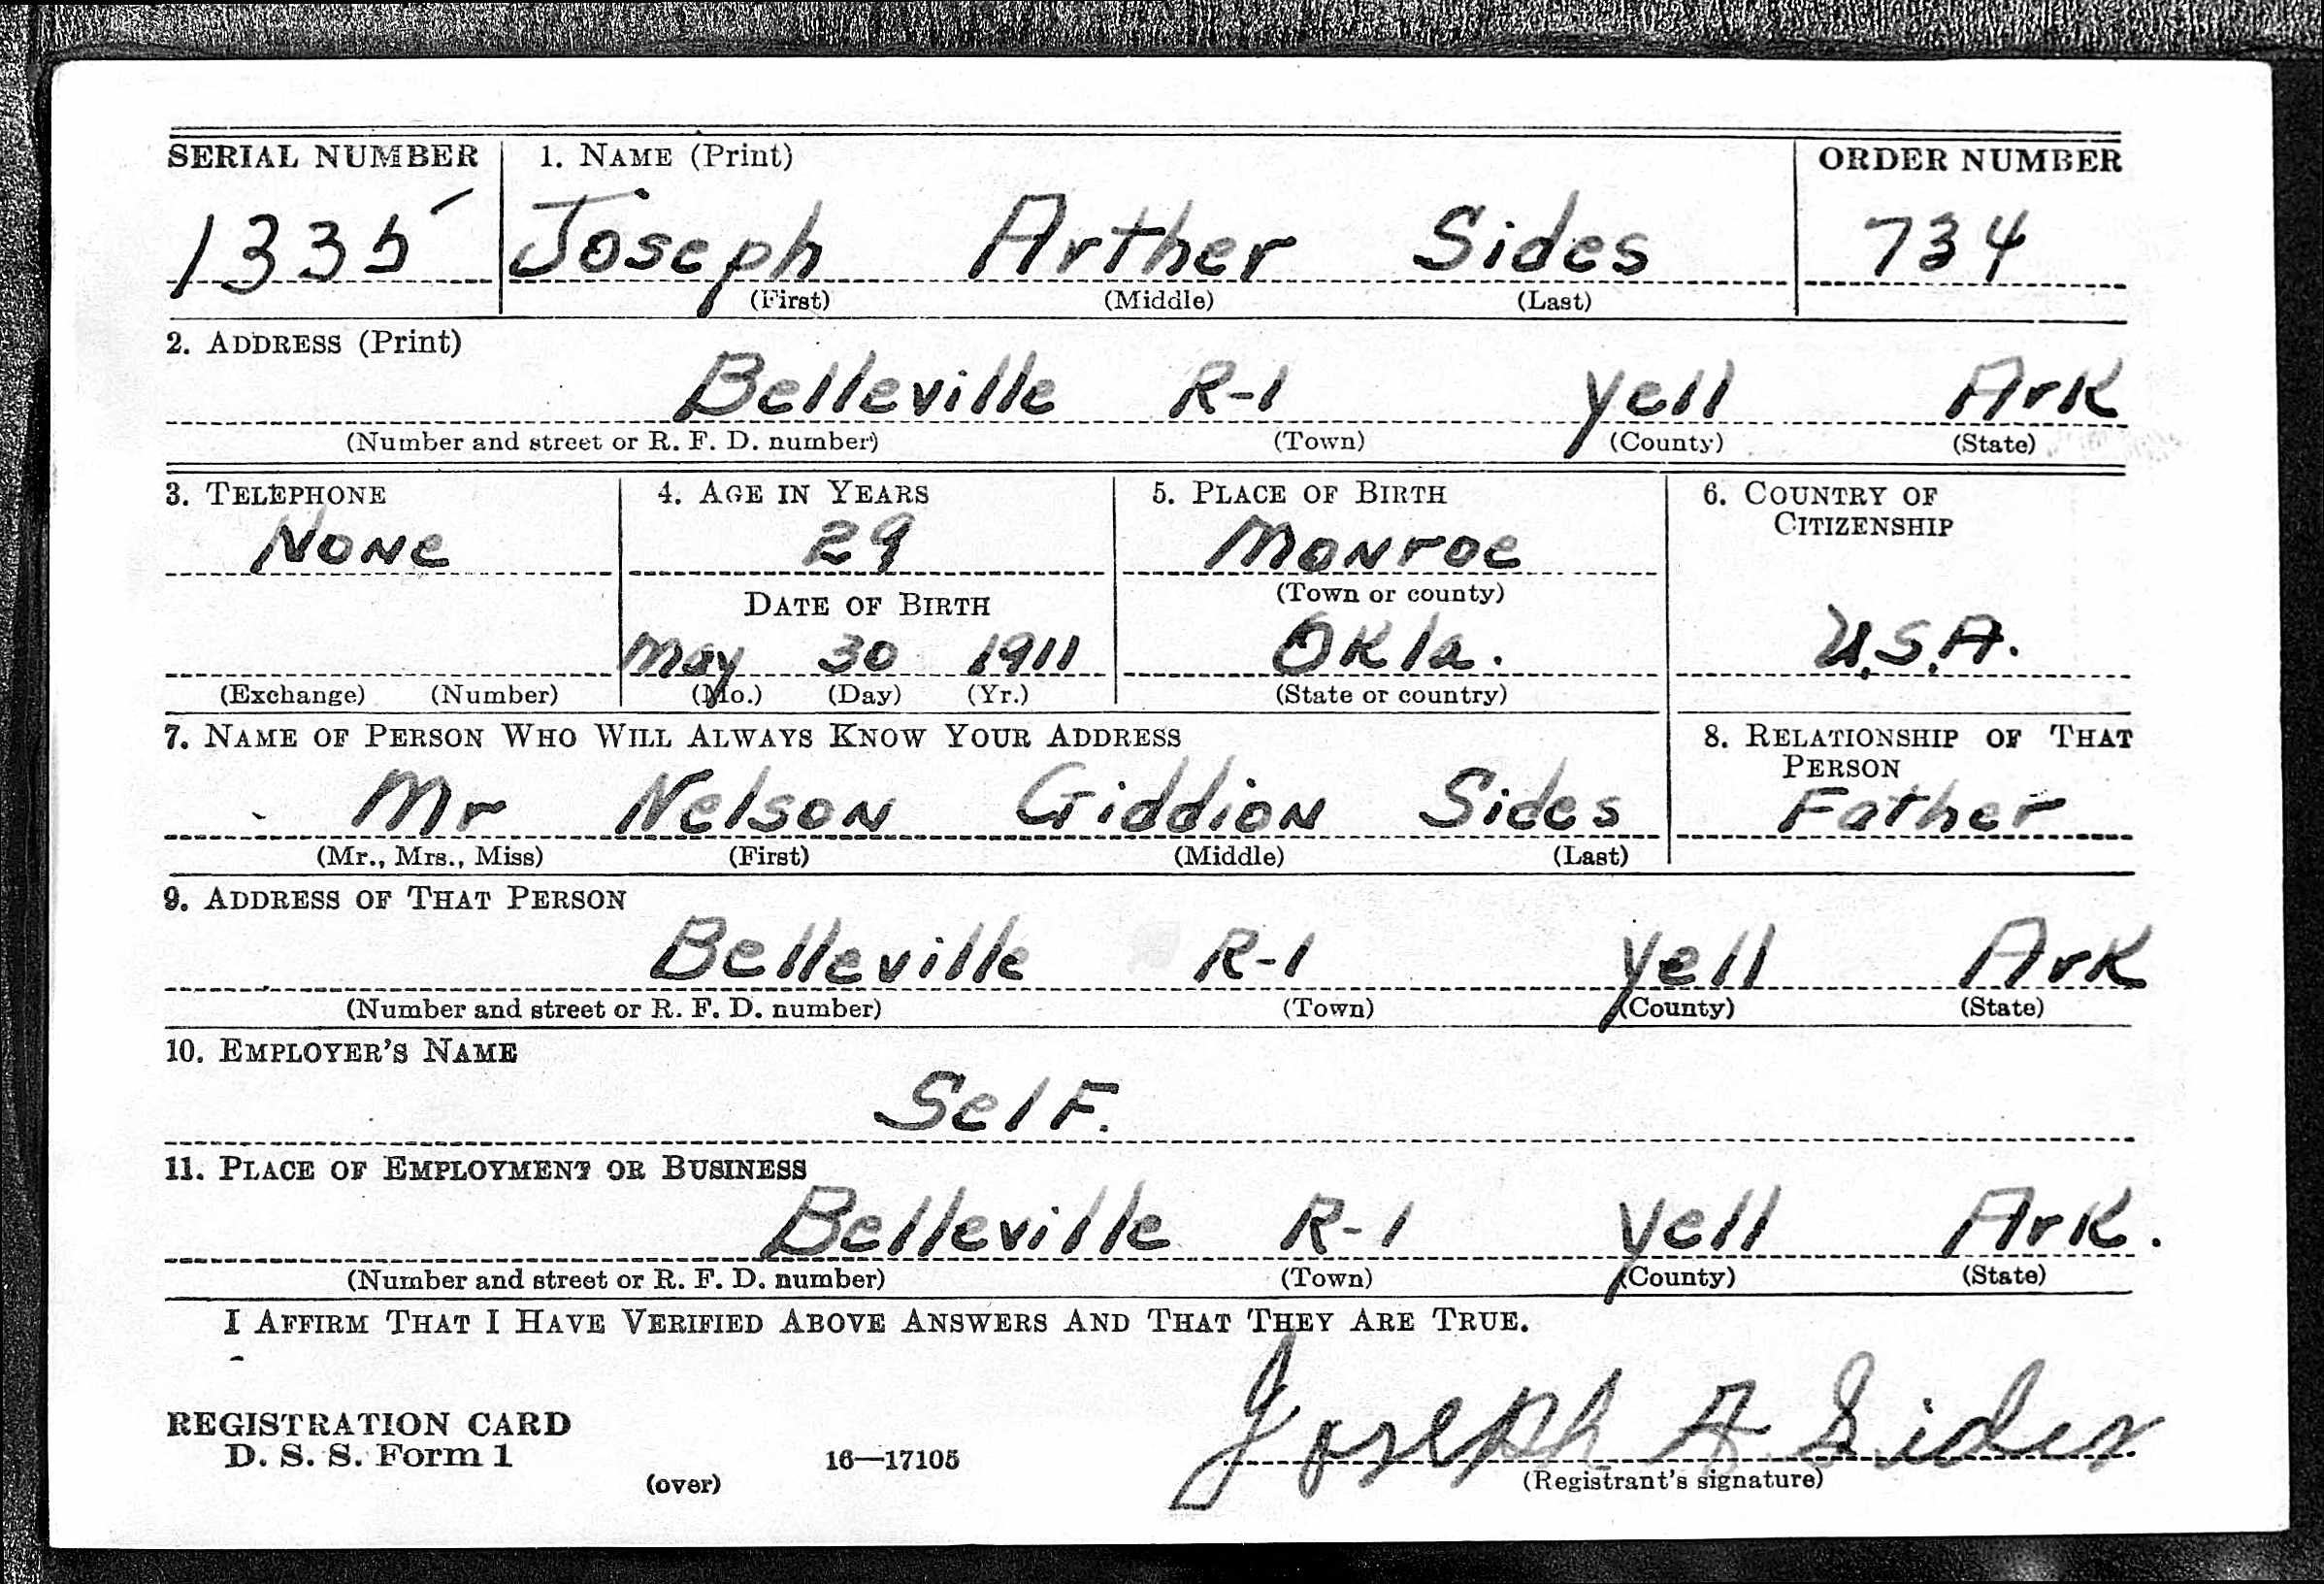 SERIAL NUMBER 1. NAME (Print) ORDER NUMBER
1335 Joseph Arther Sides 734
(First) (Middle) (Last)
2. ADDRESS (Print)
Belleville R-1 Yell Ark
(Number and street or R. F. D. number) (Town) (County) (State)
3. TELEPHONE 4. AGE IN YEARS 5. PLACE OF BIRTH 6. COUNTRY OF
CITIZENSHIP
None 29 Monroe
(Town or county)
DATE OF BIRTH
May 30 1911 Okla. U.S.A.
(Exchange) (Number) (Mo.) (Day) (Yr.) (State or country)
7. NAME OF PERSON WHO WILL ALWAYS KNOW YOUR ADDRESS 8. RELATIONSHIP OF THAT
PERSON
Mr Nelson Giddion Sides Father
(Mr., Mrs., Miss) (First) (Middle) (Last)
9. ADDRESS OF THAT PERSON
Belleville R-1 Yell Ark
(Number and street or R. F. D. number) (Town) (County) (State)
10. EMPLOYER'S NAME
Self.
11. PLACE OF EMPLOYMENT OR BUSINESS
Belleville R-1 Yell Ark.
(Number and street or R. F. D. number) (Town) (County) (State)
I AFFIRM THAT I HAVE VERIFIED ABOVE ANSWERS AND THAT THEY ARE TRUE.
Joseph A Sides
REGISTRATION CARD
D. S. S. Form 1 16—17105
(over) (Registrant's signature)